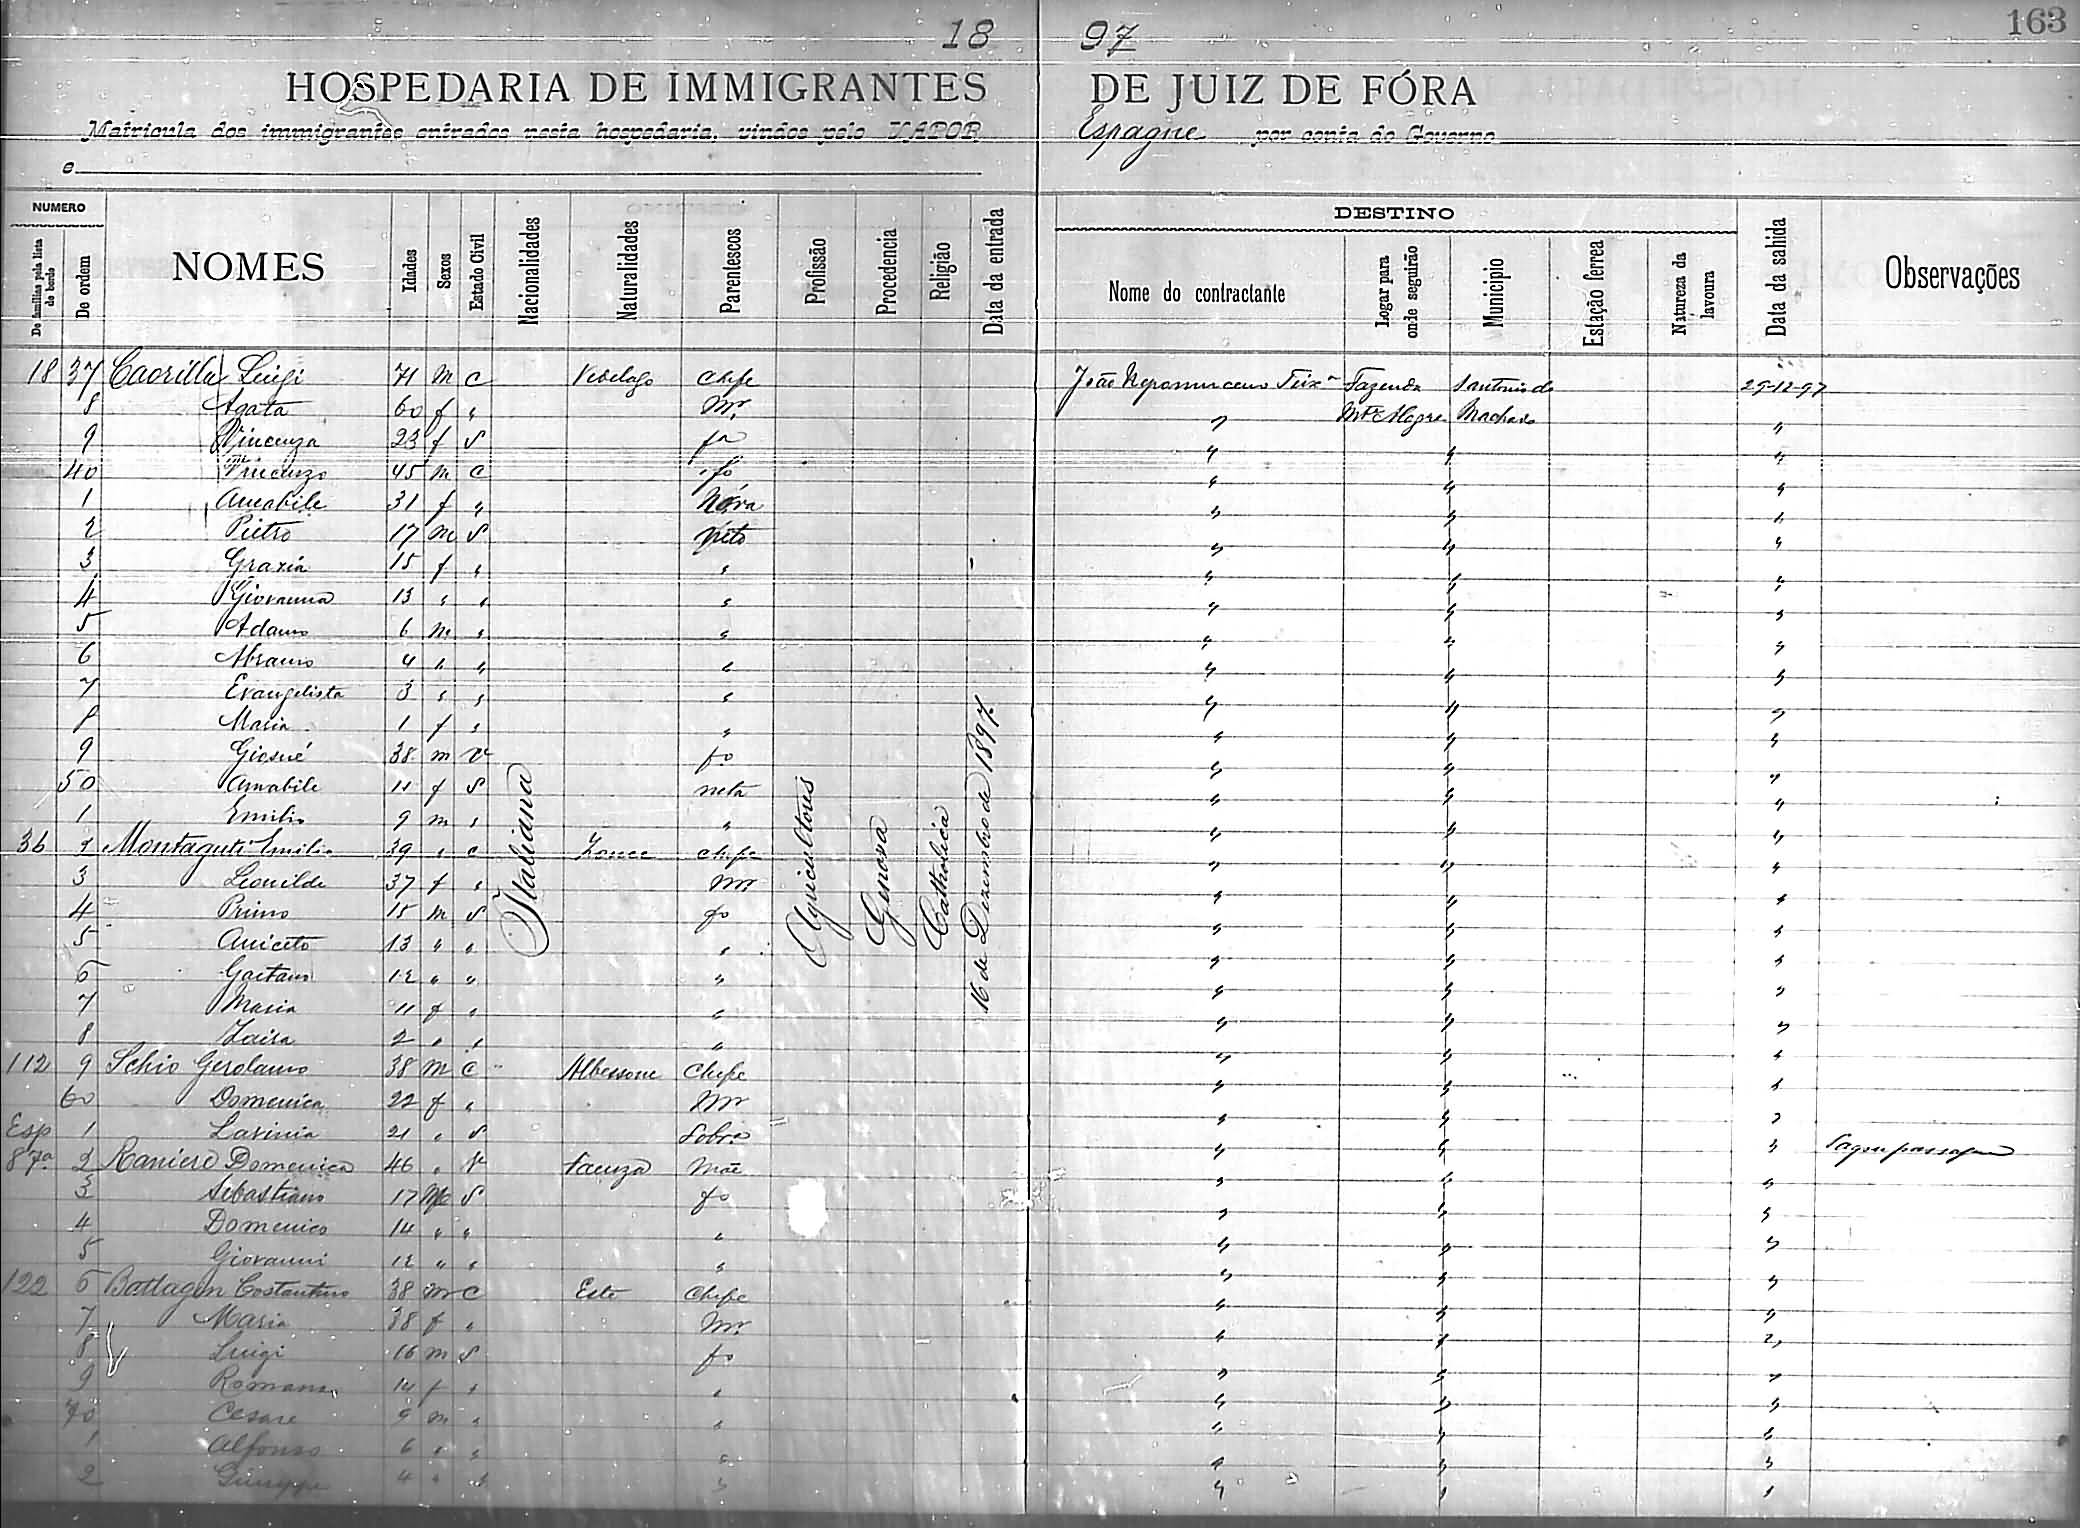 163
18 97
HOSPEDARIA DE IMMIGRANTES DE JUIZ DE FÓRA
Matricula dos immigrantes entrados nesta hospedaria, vindos pelo VAPOR Espagne por conta do Governo
e
NUMERO DESTINO
De familias pela lista de bordo De ordem NOMES Idades Sexos Estado Civil Nacionalidades Naturalidades Parentescos Profissão Procedencia Religião Data da entrada Nome do contractante Logar para onde seguirão Municipio Estação ferrea Natureza da lavoura Data da sahida Observações
18 37 Caorilla Luigi 71 m c Vedelago Chefe João Nepomuceno Teixª Fazenda Santonio do 29-12-97
8 Agata 60 f " Mr " Mte Alegre Machado "
9 Vincenza 23 f S fa " " "
40 Vincenzo 45 m c fo " " "
1 Amabile 31 f " Nóra " " "
2 Pietro 17 m S Neto " " "
3 Grazia 15 f " " " " "
4 Giovanna 13 " " " " " "
5 Adamo 6 m " " " " "
6 Abramo 4 " " " " " "
7 Evangelista 3 " " " " " "
8 Maria 1 f " " " " "
9 Giosué 38 m v fo " " "
50 Amabile 11 f S neta " " "
1 Emilio 9 m " " " " "
36 2 Montaguti Emilio 39 " c Zocca chefe " " "
3 Leonilde 37 f " mr " " "
4 Primo 15 m S fo " " "
5 Aniceto 13 " " " " " "
6 Gaetano 12 " " " " " "
7 Maria 11 f " " " " "
8 Zaira 2 " " " " " "
Italiana Agricultores Genova Catholica 16 de Dezembro de 1897
112 9 Schio Gerolamo 38 m c Albessone Chefe " " "
60 Domenica 22 f " Mr " " "
Esp 1 Lavinia 21 " S Sobrª " " "
87a 2 Raniere Domenica 46 " v Faenza Mãe " " " Pagou passagem
3 Sebastiano 17 M S fo " " "
4 Domenico 14 " " " " " "
5 Giovanni 12 " " " " " "
122 6 Battagin Costantino 38 m c Este Chefe " " "
7 Maria 38 f " Mr " " "
8 Luigi 16 m S fo " " "
9 Romana 14 f " " " " "
70 Cesare 9 m " " " " "
1 Alfonso 6 " " " " " "
2 Giuseppe 4 " " " " " "